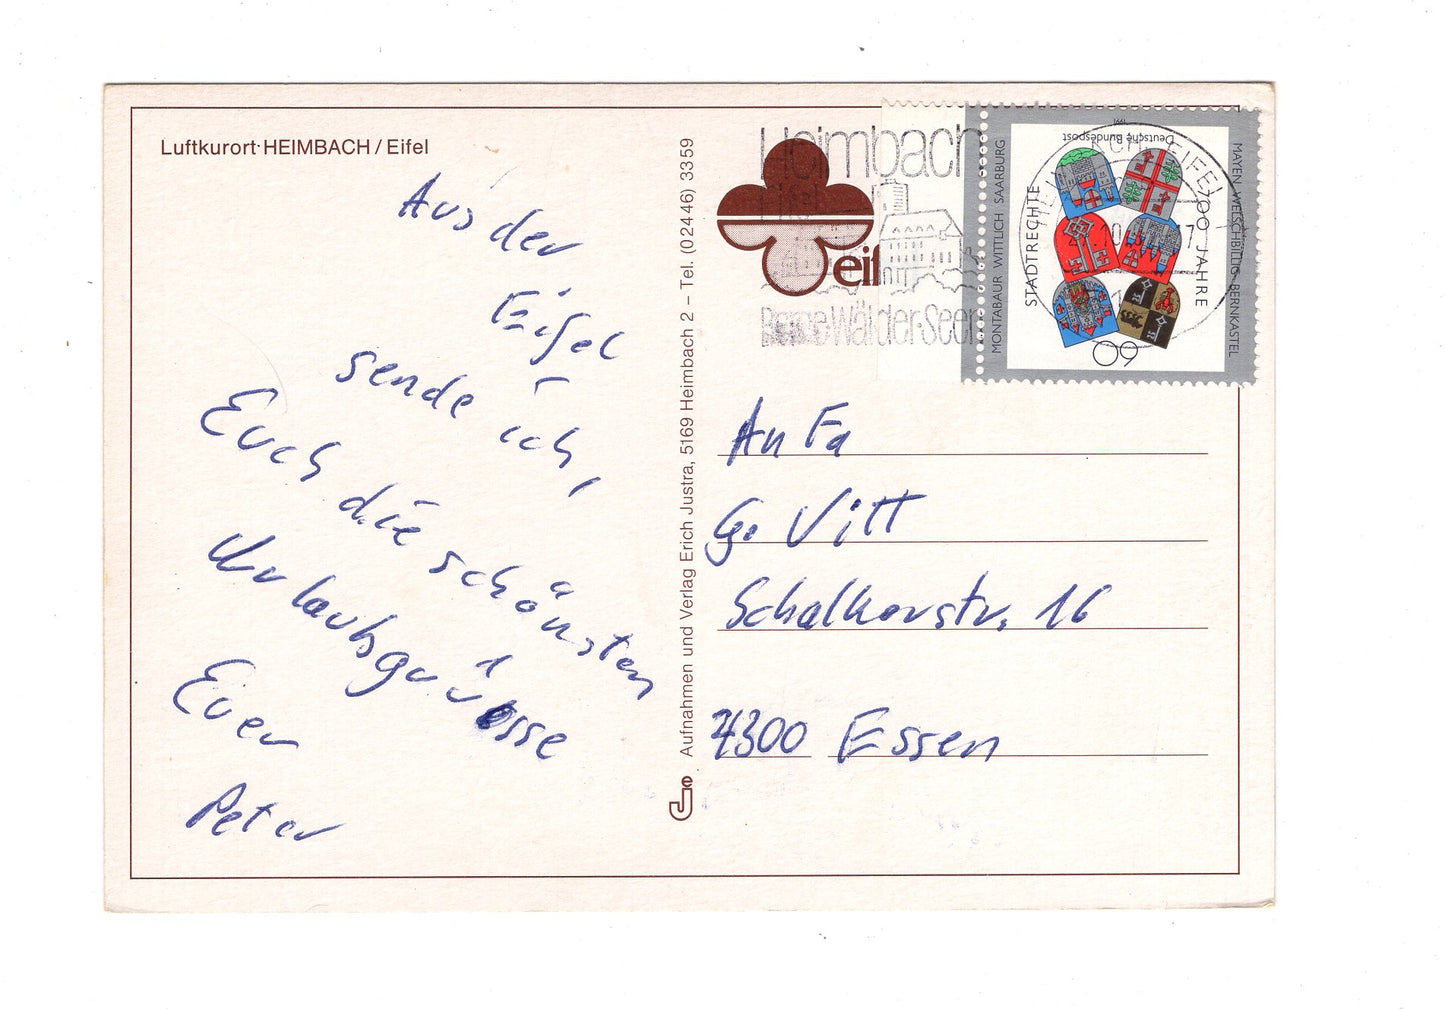 Luftkurort HEIMBACH / Eifel
Aus der
Eifel
sende ich,
Euch die schönsten
Urlaubsgrüsse
Euer
Peter
Aufnahmen und Verlag Erich Justra, 5169 Heimbach 2 – Tel. (02446) 3359
Heimbach
Eifel
Berge·Wälder·Seen
eif
MONTABAUR WITTLICH SAARBURG
STADTRECHTE
700 JAHRE
MAYEN WELSCHBILLIG BERNKASTEL
Deutsche Bundespost
1991
60
An Fa
Vitt
Schalkerstr. 16
4300 Essen